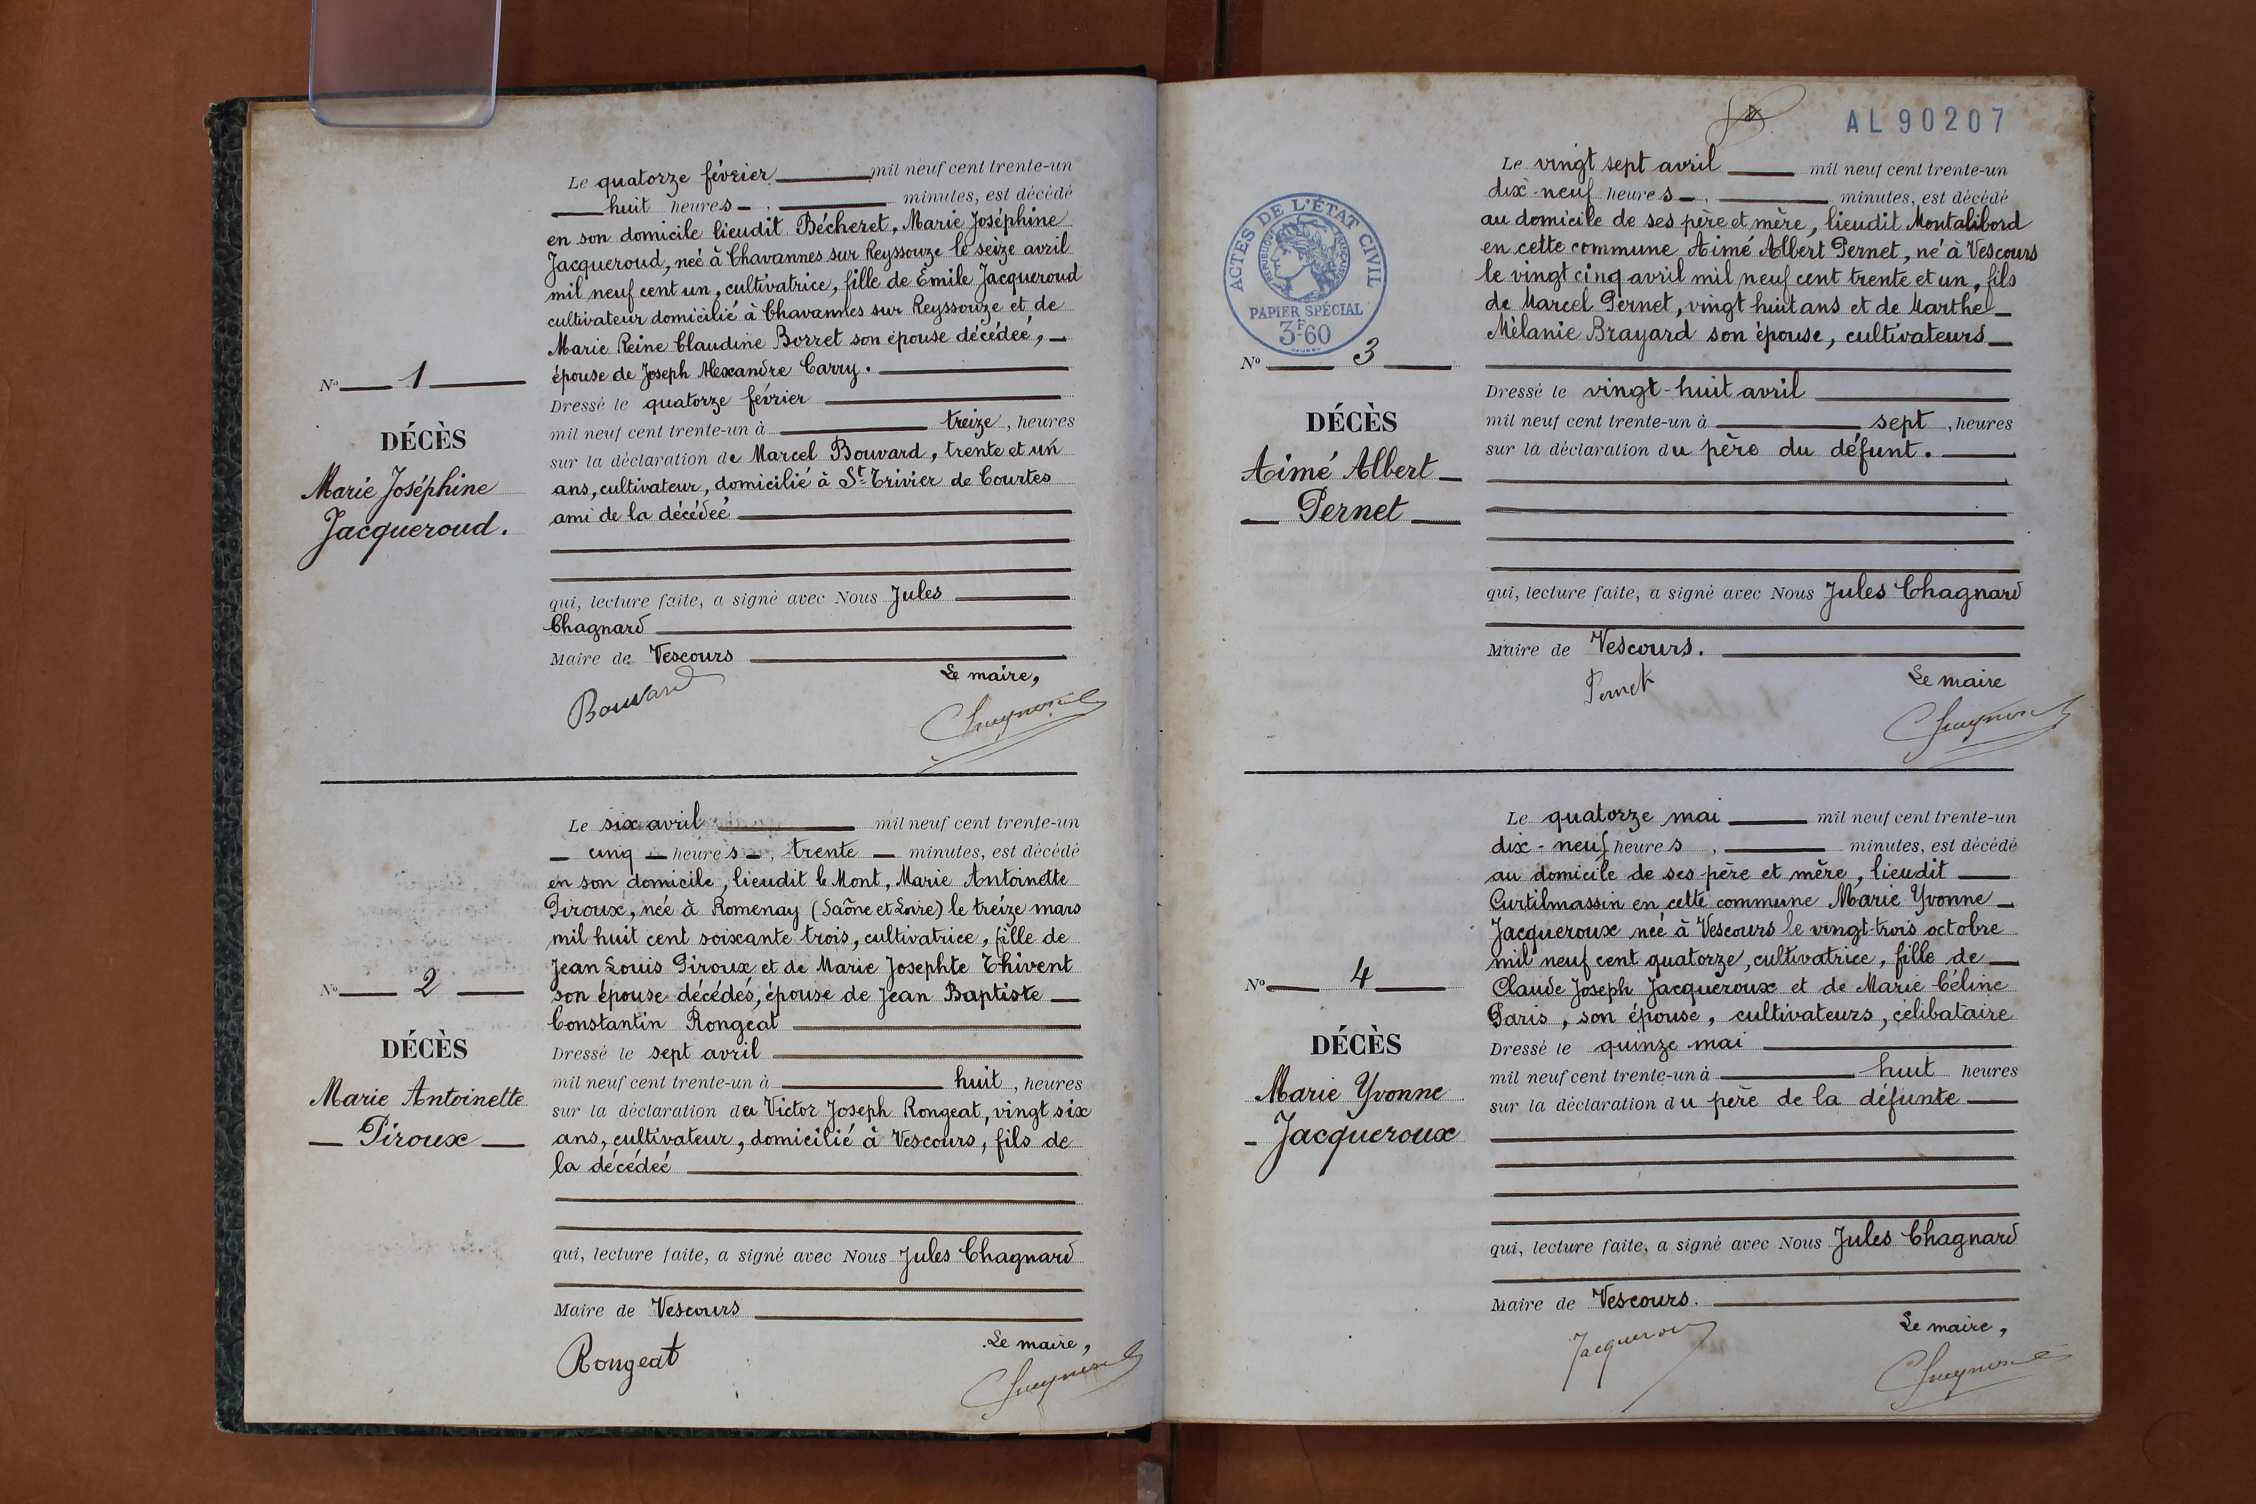 Le quatorze février mil neuf cent trente-un
huit heures minutes, est décédé
en son domicile lieudit Bécheret, Marie Joséphine
Jacqueroud, née à Chavannes sur Reyssouze le seize avril
mil neuf cent un, cultivatrice, fille de Emile Jacqueroud
cultivateur domicilié à Chavannes sur Reyssouze et de
Marie Reine Claudine Borret son épouse décédée,
épouse de Joseph Alexandre Carry.
N° 1
Dressé le quatorze février
mil neuf cent trente-un à treize, heures
DÉCÈS
sur la déclaration de Marcel Bouvard, trente et un
Marie Joséphine
ans, cultivateur, domicilié à St Trivier de Courtes
Jacqueroud.
ami de la décédée
qui, lecture faite, a signé avec Nous Jules
Chagnard
Maire de Vescours
Le maire,
Bouvard
Le six avril mil neuf cent trente-un
cinq heures, trente minutes, est décédé
en son domicile, lieudit le Mont, Marie Antoinette
Piroux, née à Romenay (Saône et Loire) le treize mars
mil huit cent soixante trois, cultivatrice, fille de
Jean Louis Piroux et de Marie Josephte Thivent
N° 2
son épouse décédés, épouse de Jean Baptiste
Constantin Rongeat
DÉCÈS
Dressé le sept avril
mil neuf cent trente-un à huit, heures
Marie Antoinette
sur la déclaration de Victor Joseph Rongeat, vingt six
Piroux
ans, cultivateur, domicilié à Vescours, fils de
la décédée
qui, lecture faite, a signé avec Nous Jules Chagnard
Maire de Vescours
Le maire,
Rongeat
AL 90207
Le vingt sept avril mil neuf cent trente-un
dix-neuf heures, minutes, est décédé
au domicile de ses père et mère, lieudit Montalibord
en cette commune Aimé Albert Pernet, né à Vescours
le vingt cinq avril mil neuf cent trente et un, fils
de Marcel Pernet, vingt huit ans et de Marthe
Mélanie Brayard son épouse, cultivateurs
ACTES DE L'ÉTAT CIVIL
RÉPUBLIQUE FRANÇAISE
PAPIER SPÉCIAL
3F60
N° 3
Dressé le vingt-huit avril
DÉCÈS
mil neuf cent trente-un à sept, heures
Aimé Albert
sur la déclaration du père du défunt.
Pernet
qui, lecture faite, a signé avec Nous Jules Chagnard
Maire de Vescours.
Le maire
Pernet
Le quatorze mai mil neuf cent trente-un
dix-neuf heures, minutes, est décédé
au domicile de ses père et mère, lieudit
Curtilmassin en cette commune Marie Yvonne
Jacqueroux née à Vescours le vingt-trois octobre
mil neuf cent quatorze, cultivatrice, fille de
N° 4
Claude Joseph Jacqueroux et de Marie Céline
Paris, son épouse, cultivateurs, célibataire
DÉCÈS
Dressé le quinze mai
mil neuf cent trente-un à huit heures
Marie Yvonne
sur la déclaration du père de la défunte
Jacqueroux
qui, lecture faite, a signé avec Nous Jules Chagnard
Maire de Vescours.
Le maire,
Jacqueroux